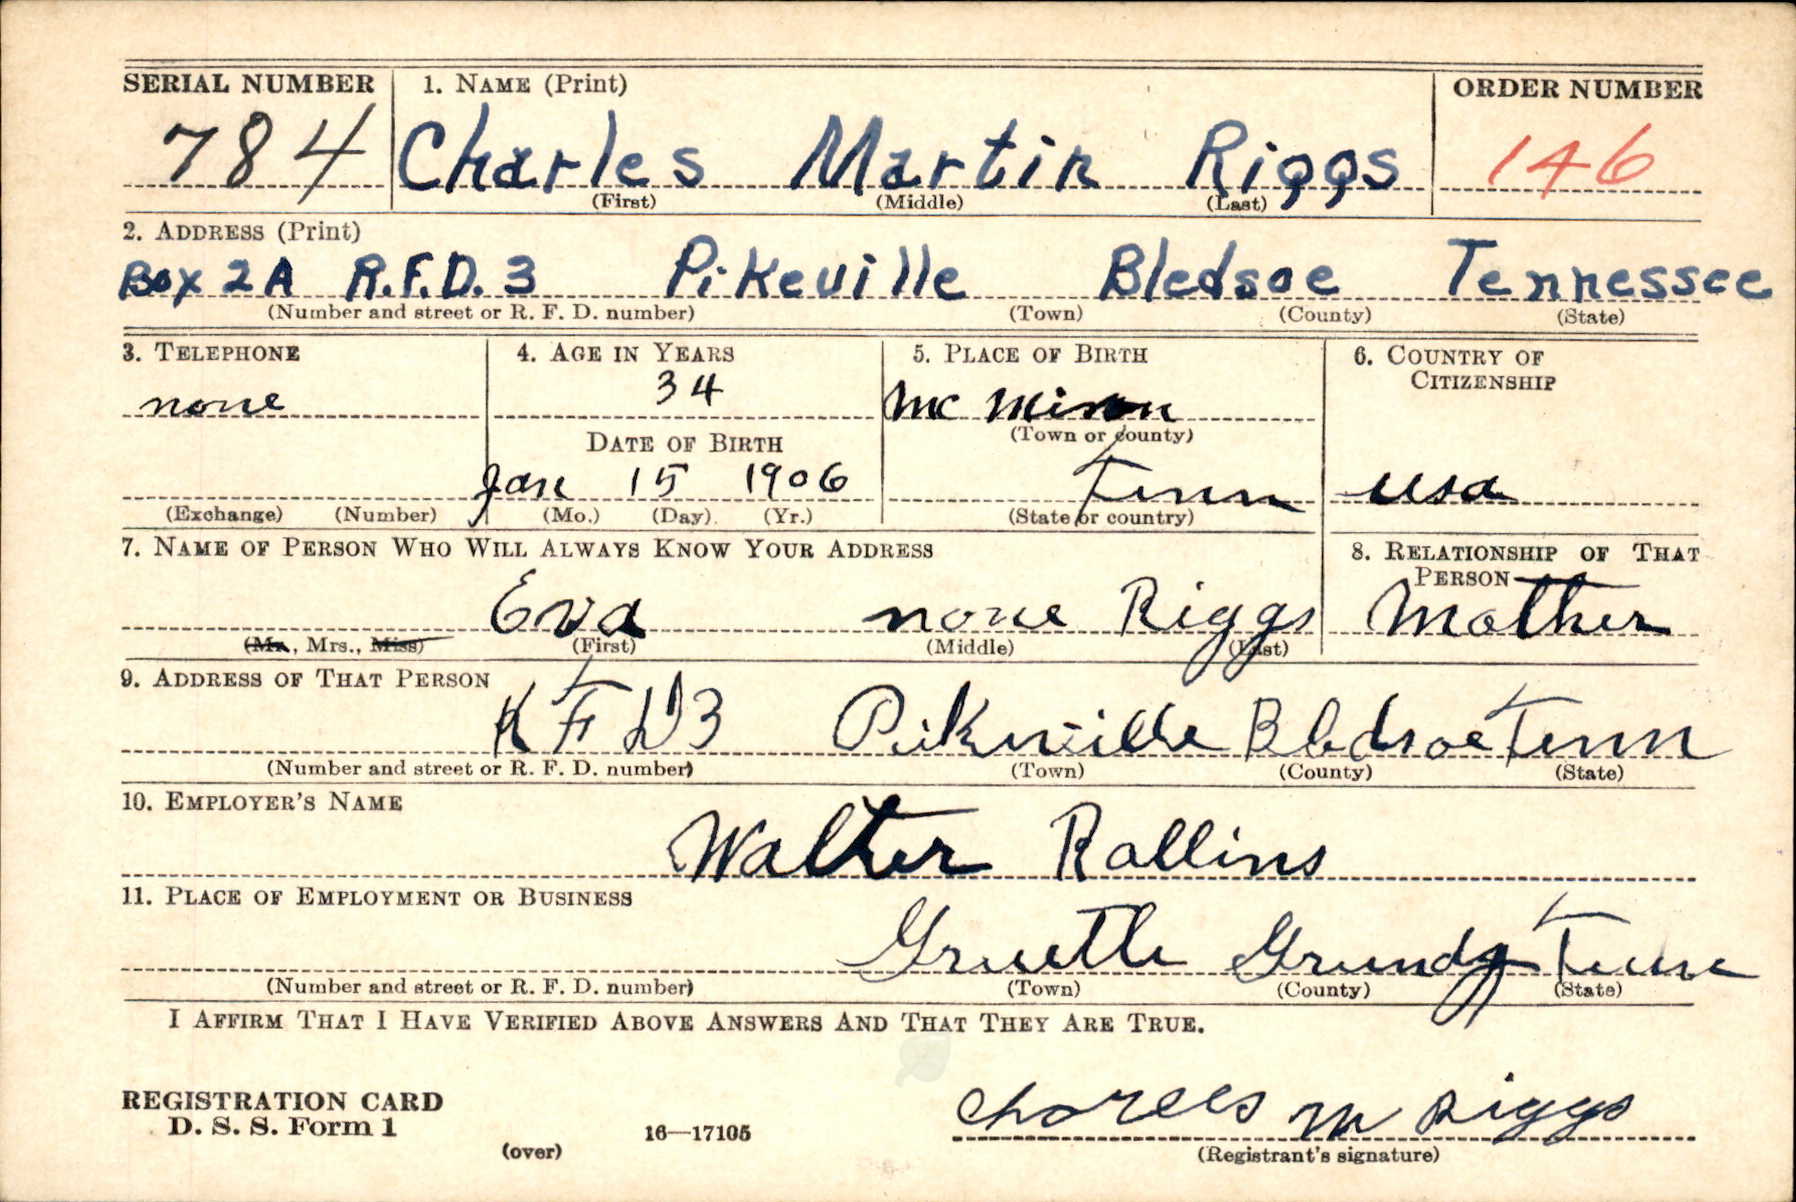 SERIAL NUMBER 1. NAME (Print) ORDER NUMBER
784 Charles Martin Riggs 146
(First) (Middle) (Last)
2. ADDRESS (Print)
Box 2A R.F.D. 3 Pikeville Bledsoe Tennessee
(Number and street or R. F. D. number) (Town) (County) (State)
3. TELEPHONE 4. AGE IN YEARS 5. PLACE OF BIRTH 6. COUNTRY OF
CITIZENSHIP
none 34 Mc Minn
(Town or county)
DATE OF BIRTH
Jan 15 1906 Tenn usa
(Exchange) (Number) (Mo.) (Day) (Yr.) (State or country)
7. NAME OF PERSON WHO WILL ALWAYS KNOW YOUR ADDRESS 8. RELATIONSHIP OF THAT
PERSON
Eva none Riggs Mother
(Mr., Mrs., Miss) (First) (Middle) (Last)
9. ADDRESS OF THAT PERSON
R F D 3 Pikeville Bledsoe Tenn
(Number and street or R. F. D. number) (Town) (County) (State)
10. EMPLOYER'S NAME
Walter Rollins
11. PLACE OF EMPLOYMENT OR BUSINESS
Gruetli Grundy Tenn
(Number and street or R. F. D. number) (Town) (County) (State)
I AFFIRM THAT I HAVE VERIFIED ABOVE ANSWERS AND THAT THEY ARE TRUE.
REGISTRATION CARD
D. S. S. Form 1 16—17105 Charles M Riggs
(over) (Registrant's signature)